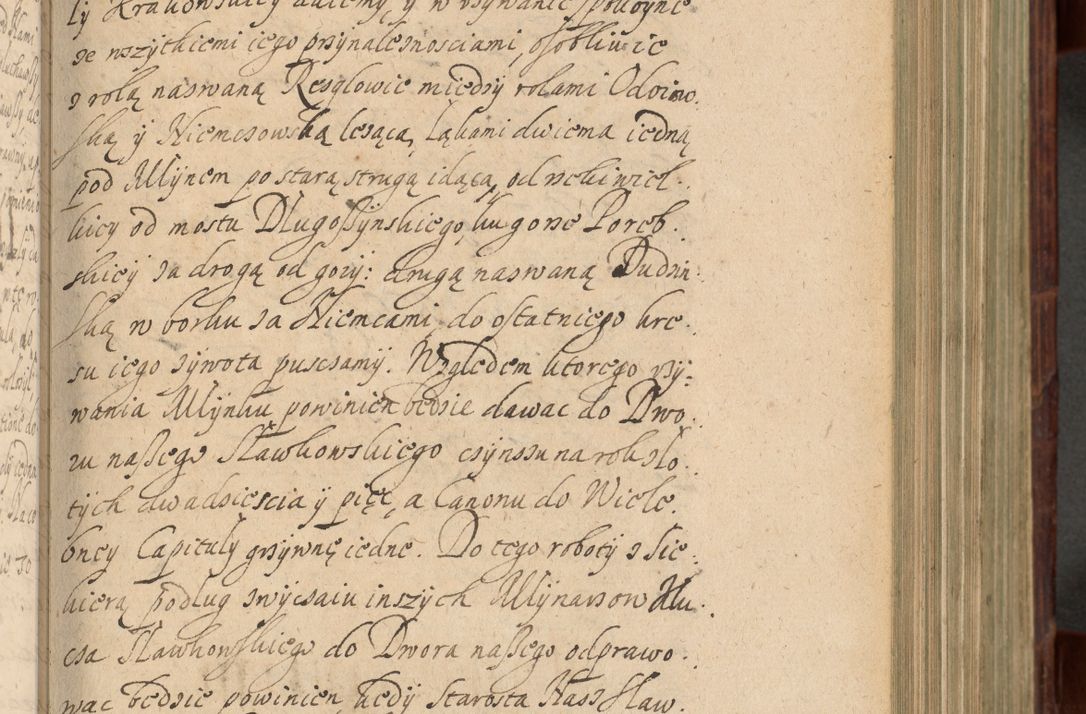 ły Krakowskiey daiemy y w vzywanie spokoyne
ze wszytkiemi iego przynalesnosciami, osobliwie
z rolą nazwaną Resglowic miedzy rolami Odoiow
ską y Niemczowską lezącą, Łąkami dwiema iedną
pod Młynem po starą strugą idącą, od rzeki wiel
kiey od mostu Długoszynskiego, ku gorze Poręb
skiey za drogą od gory: drugą nazwaną Dudzin
ską w borku za Niemcami, do ostatniego kre
su iego zywota pusczamy. Względem ktorego vzy
wania Młynku powinien będzie dawac do Dwo
ru naszego Sławkowskiego czynszu na rok zło
tych dwadziescia y pięc, a Canonu do Wiele
bney Capituły grzywnę iednę. Do tego roboty z Sie
kierą podług zwyczaiu inszych Młynarzow Klu
cza Sławkowskiego do Dwora naszego odprawo
wac będzie powinien, kiedy Starosta Nasz Sław